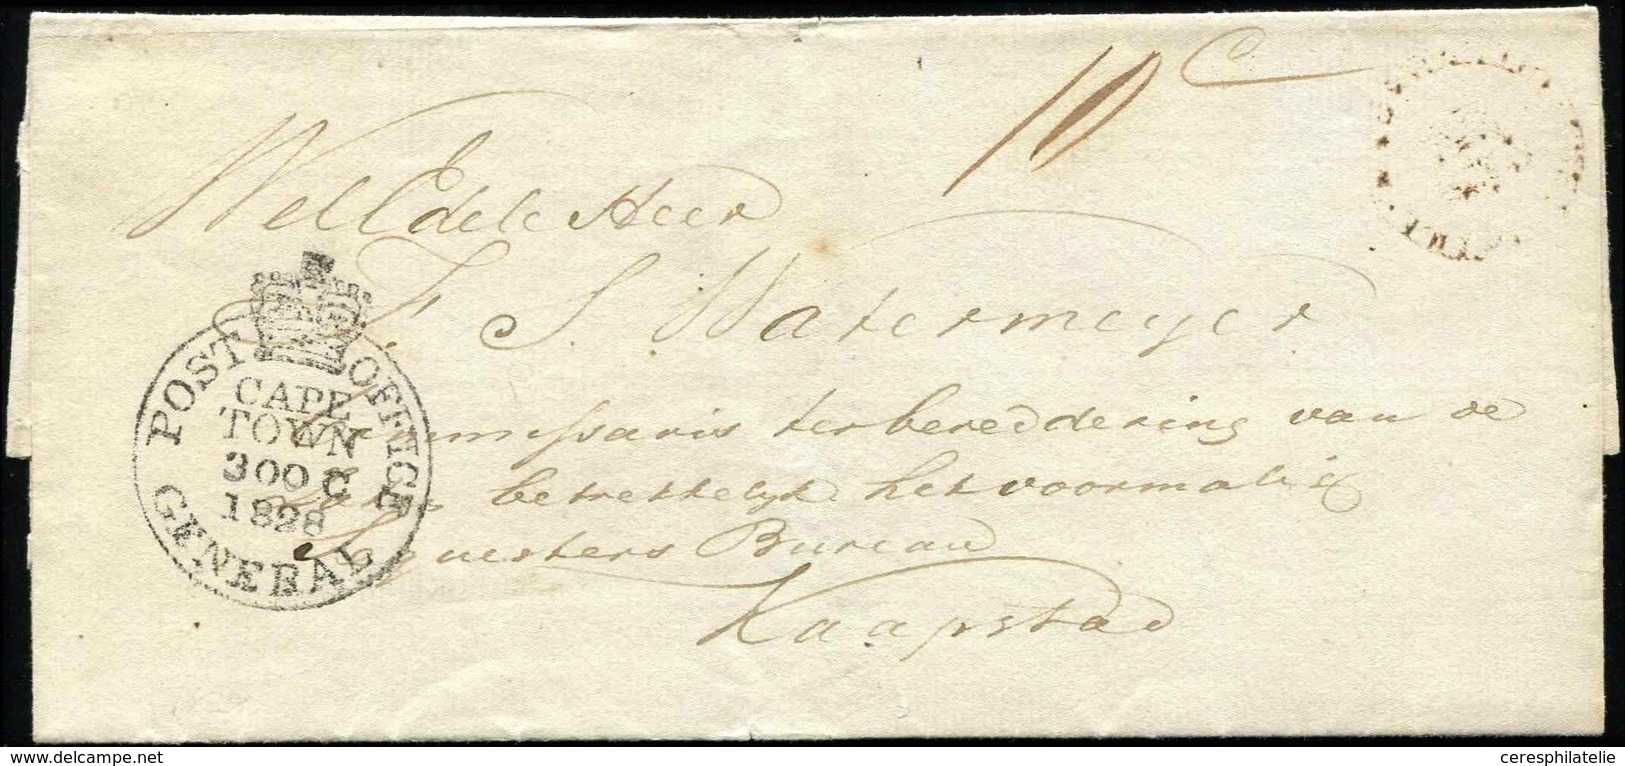 10 C
Well Edele Heer
F. S. Watermeyer
Commissaris ter bereddering van de
betrekkelyk het voormalig
Sequesters Bureau
Kaapstad
POST OFFICE
CAPE
TOWN
30 OC
1828
GENERAL
ceresphilatelie